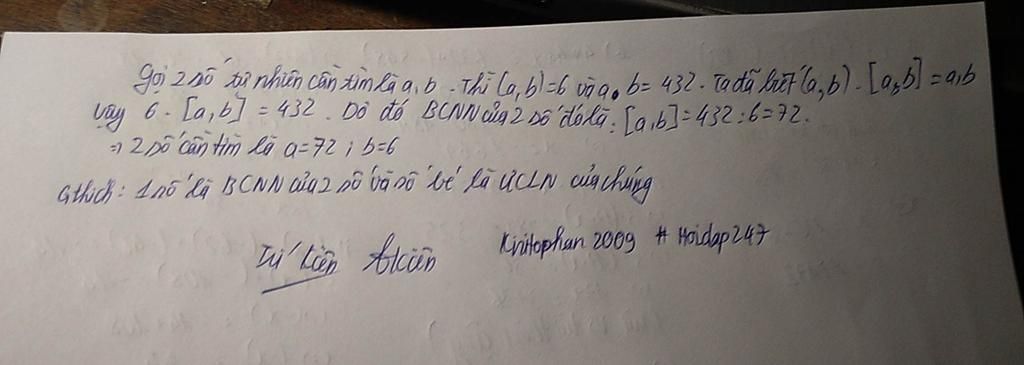 Gọi 2 số tự nhiên cần tìm là a, b. Thì (a, b)=6 và a. b= 432. Ta đã biết (a, b). [a, b] = a.b
vậy 6. [a, b] = 432. Do đó BCNN của 2 số đó là: [a, b]=432:6=72.
=> 2 số cần tìm là a=72; b=6
Gthích: 1 số là BCNN của 2 số và số bé là ƯCLN của chúng
Khitophan 2009 # Hoidap247